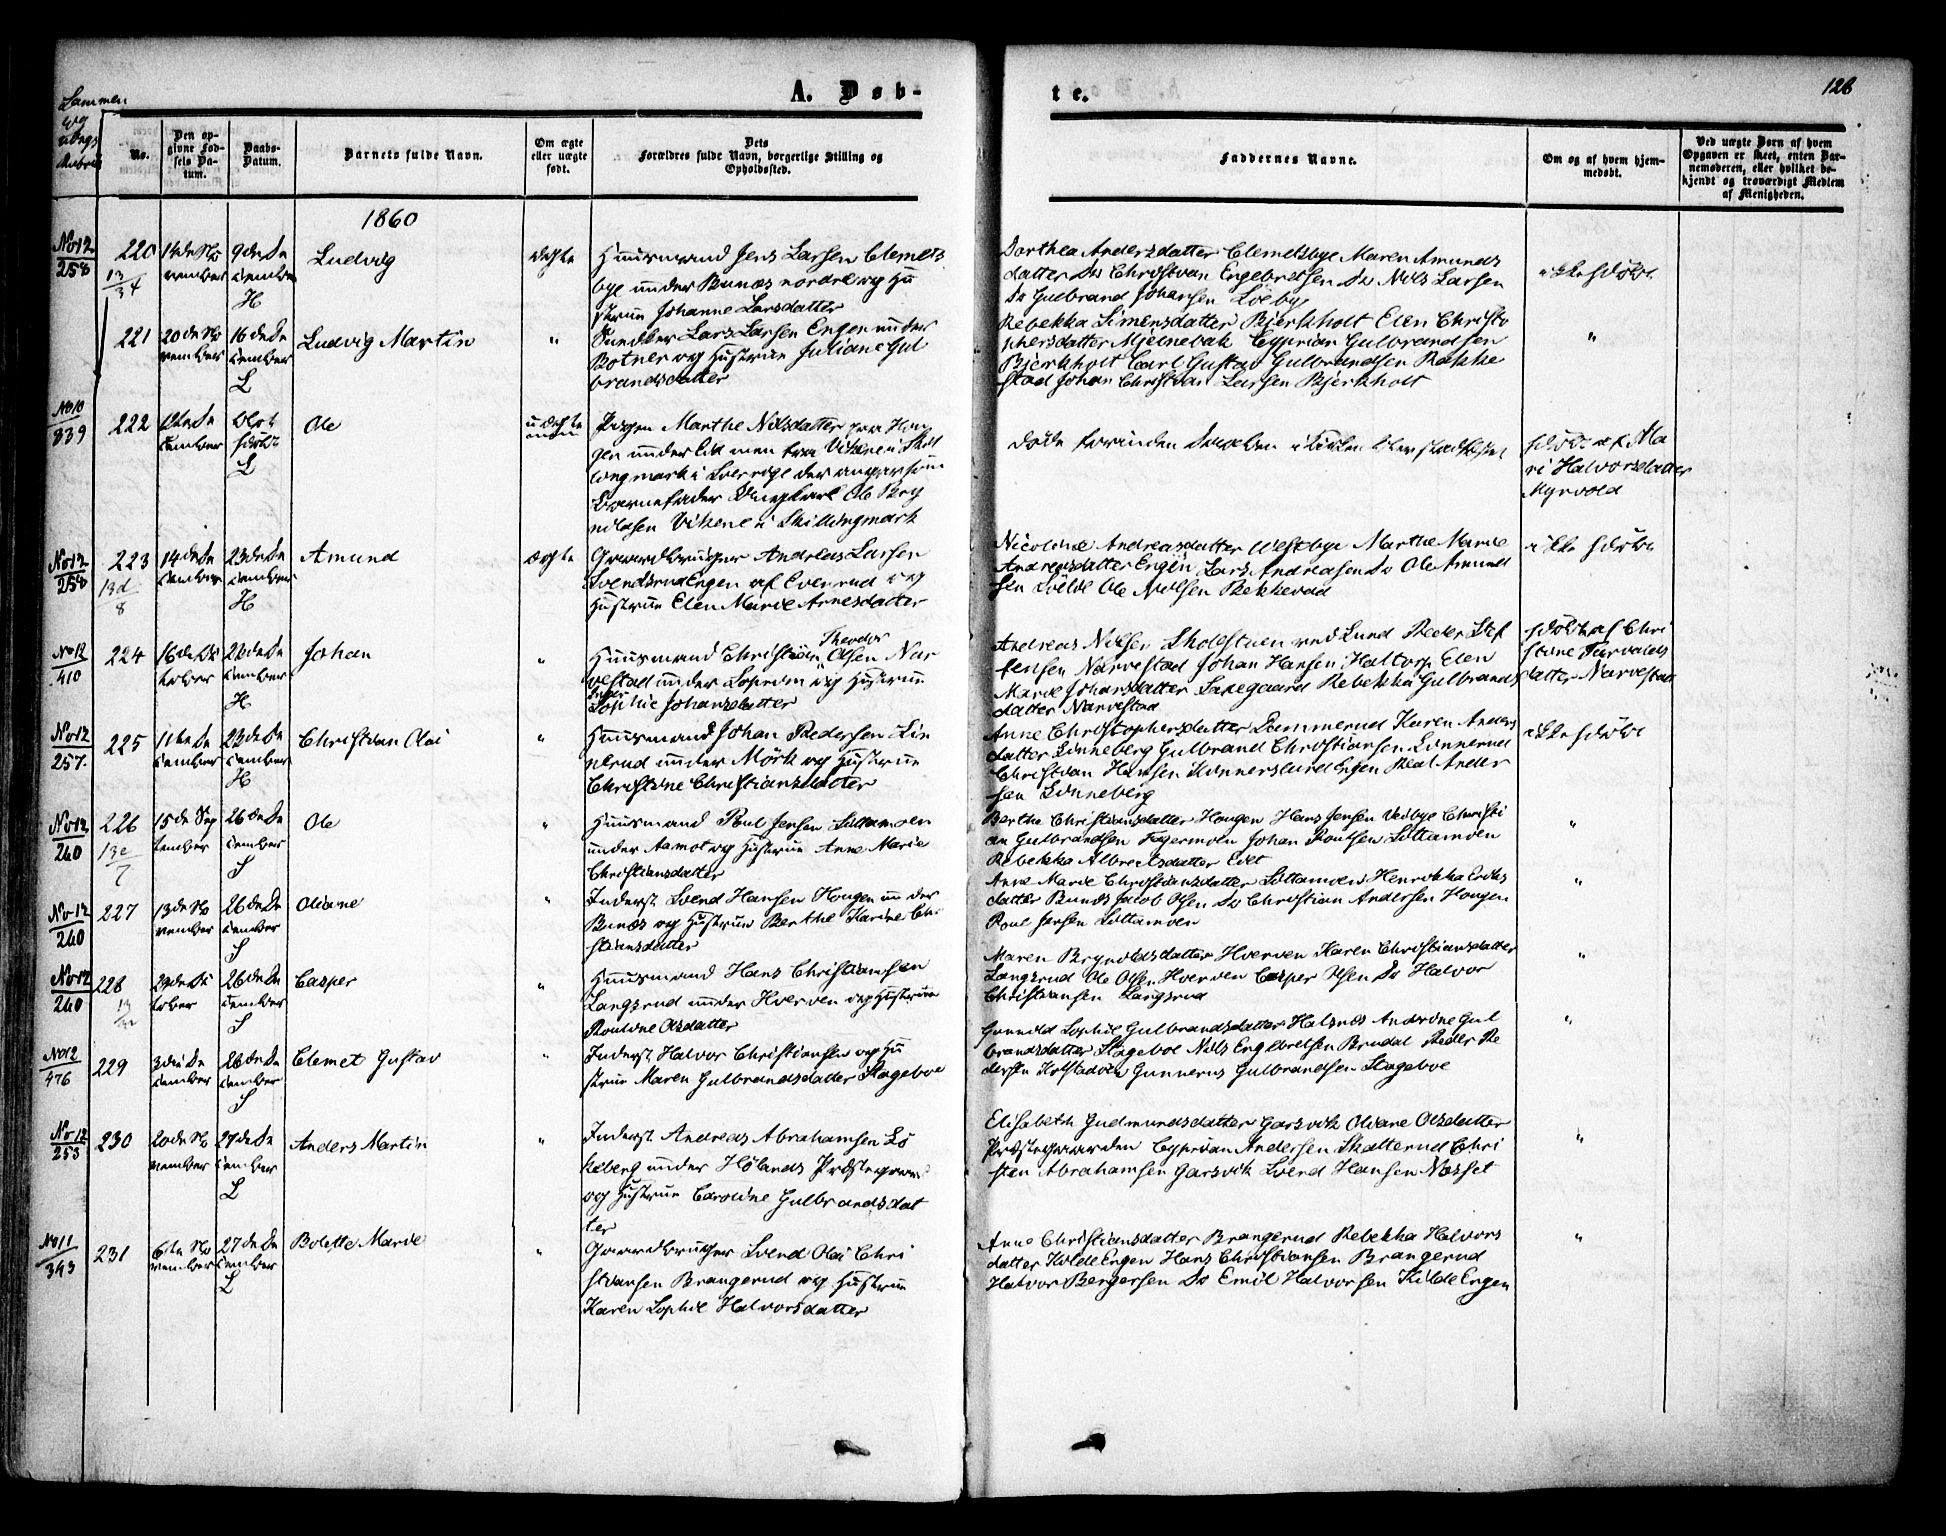 A. Døb-
te.
128
Sammen
og
No.
Den op-
givne Fød-
sels Da-
tum.
Daabs-
Datum.
Barnets fulde Navn.
Om ægte
eller uægte
født.
Dets
Forældres fulde Navn, borgerlige Stilling og
Opholdssted.
Faddernes Navne.
Om og af hvem hjem-
medøbt.
Ved uægte Børn af hvem
Opgaven er skeet, enten Bar-
nemoderen, eller hvilket be-
kjendt og troværdigt Medlem
af Menigheden.
1860
No 12
258
220
14de No
vember
9de De
cember
H
Ludvig
ægte
Huusmand Jens Larsen Clemets
bye under Bunæs nordre og Hu
strue Johanne Larsdatter
Dorthea Andersdatter Clemetsbye Maren Amunds
datter Do Christian Engebretsen Do Nils Larsen
Do Gulbrand Johansen Loeby
ikke hjdøbt
221
20de No
vember
16de De
cember
L
Ludvig Martin
"
Lars Larsen Engen under
Botner og Hustrue Juliane Gul
brandsdatter
Rebekka Simensdatter Bjerkholt Elen Christo
phersdatter Mjelnebak Cyprian Gulbrandsen
Bjerkholt Carl Gustav Gulbrandsen Rakke
stad Johan Christian Larsen Bjerkholt
"
No 10
839
222
12te De
cember
L
Ole
uægte
Pigen Marthe Nilsdatter paa Hou
gen under men fra Vikene i Skil
lingmark i Sverrige der angav som
Barnefader Ungkarl Ole Bry
nildsen Vikene i Skillingmark
døde forinden i Kirken
hjdøbt af Ma
ri Halvorsdatter
Myrvold
No 12
258
223
13d
8
14de De
cember
23de De
cember
H
Amund
ægte
Gaardbruger Andreas Larsen
SvendsrudEngen af Evenrud og
Hustrue Elen Marie Arnesdatter
Nicoline Andreasdatter Westbye Marthe Marie
Andreasdatter Engen Lars Andreasen Do Ole Amund
sen Ole Nilsen Bekkevad
ikke hjdøbt
No 12
410
224
16de Oc
tober
23de De
cember
H
Johan
"
Theodor
Huusmand Christian Olsen Nar
vestad under Soprim og Hustrue
Sophie Johansdatter
Andreas Nilsen Skolestuen ved Lund Peder Stef
fensen Narvestad Johan Hansen Haltorp Elen
Marie Johansdatter Saxegaard Rebekka Gulbrands
datter Narvestad
hjdøbt af Chri
stine Torvalds
datter Narvestad
No 12
257.
225
11te De
cember
23de De
cember
H
Christian Olai
"
Huusmand Johan Pedersen Lin
nerud under Mørk og Hustrue
Christine Christiansdatter
Anne Christophersdatter Lammerud Karen Anders
datter Linneberg Gulbrand Christiansen Linnerud
Christian Hansen KinnerslundEngen Paal Ander
sen Linneberg
ikke hjdøbt
No 12
260
226
13e
7
15de Sep
tember
26de De
cember
S
Ole
"
Huusmand Poul Jensen Slottamoen
under Aamot og Hustrue Anne Marie
Christiansdatter
Berthe Christiansdatter Hougen Hans Jensen Vesbye Christi
an Gulbrandsen Fagermoen Johan Poulsen Slottamoen
Rebekka Albrechtsdatter Eid
"
No 12
260
227
13de No
vember
26de De
cember
S
Oliane
"
Inderst Svend Hansen Hougen un der
Bunæs og Hustrue Berthe Karine Chri
stiansdatter
Anne Marie Christiansdatter Slottamoen Henrikka Eriks
datter Bunæs Jacob Olsen Do Christian Andersen Hougen
Poul Jensen Slottamoen
"
No 12
260
228
29de Oc
tober
26de De
cember
S
Casper
"
Huusmand Hans Christiansen
Langsrud under Hverven og Hustrue
Pouline Olsdatter
Maren Brynildsdatter Hverven Karen Christiansdatter
Langsrud Ole Olsen Hverven Casper Olsen Do Halvor
Christiansen Langsrud
"
No 12
476
229
3die De
cember
26de De
cember
S
Clemet Gustav
"
Inderst Halvor Christiansen og Hu
strue Maren Gulbrandsdatter Skageboe
Gunnild Sophie Gulbrandsdatter Halsnes Andrine Gul
brandsdatter Skageboe Nils Engebretsen Bredal Peder Pe
dersen Kolstadvon Gunnerus Gulbrandsen Skageboe
"
No 12
253
230
20de No
vember
27de De
cember
L
Anders Martin
"
Inderst Andreas Abrahamsen Lø
keberg under Hølands Præstegaard
og Hustrue Caroline Gulbrandsdat
ter
Elisabeth Gudmundsdatter Garsvik Oliane Olsdatter
Præstegaarden Cyprian Andersen Skatterud Chri
sten Abrahamsen Garsvik Svend Hansen Næsset
"
No 11
343
231
6te No
vember
27de De
cember
L
Bolette Marie
"
Gaardbruger Svend Olai Chri
stiansen Brangerud og Hustrue
Karen Sophie Halvorsdatter
Anne Christiansdatter Brangerud Rebekka Halvors
datter KildeEngen Hans Christiansen Brangerud
Halvor Bergersen Do Emil Halvorsen KildeEngen
"